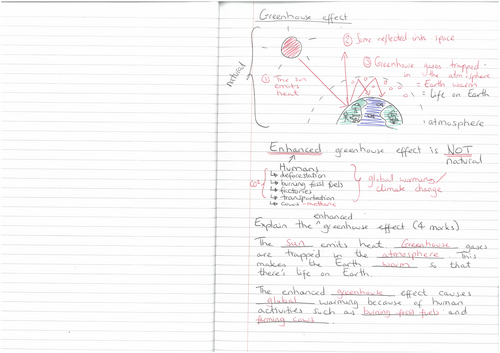 Greenhouse effect
natural
① The sun
emits
heat
② Some reflected into space
③ Greenhouse gases trapped
in the atmosphere
= Earth warm
= Life on Earth
atmosphere
Enhanced greenhouse effect is NOT
natural
Humans
CO²
↳ deforestation
↳ burning fossil fuels
↳ factories
↳ transportation
↳ cows - methane
global warming/
climate change
Explain the ^enhanced greenhouse effect (4 marks)
The Sun emits heat Greenhouse gases
are trapped in the atmosphere This
makes the Earth warm so that
there's life on Earth.
The enhanced greenhouse effect causes
global warming because of human
activities such as burning fossil fuels and
farming cows.